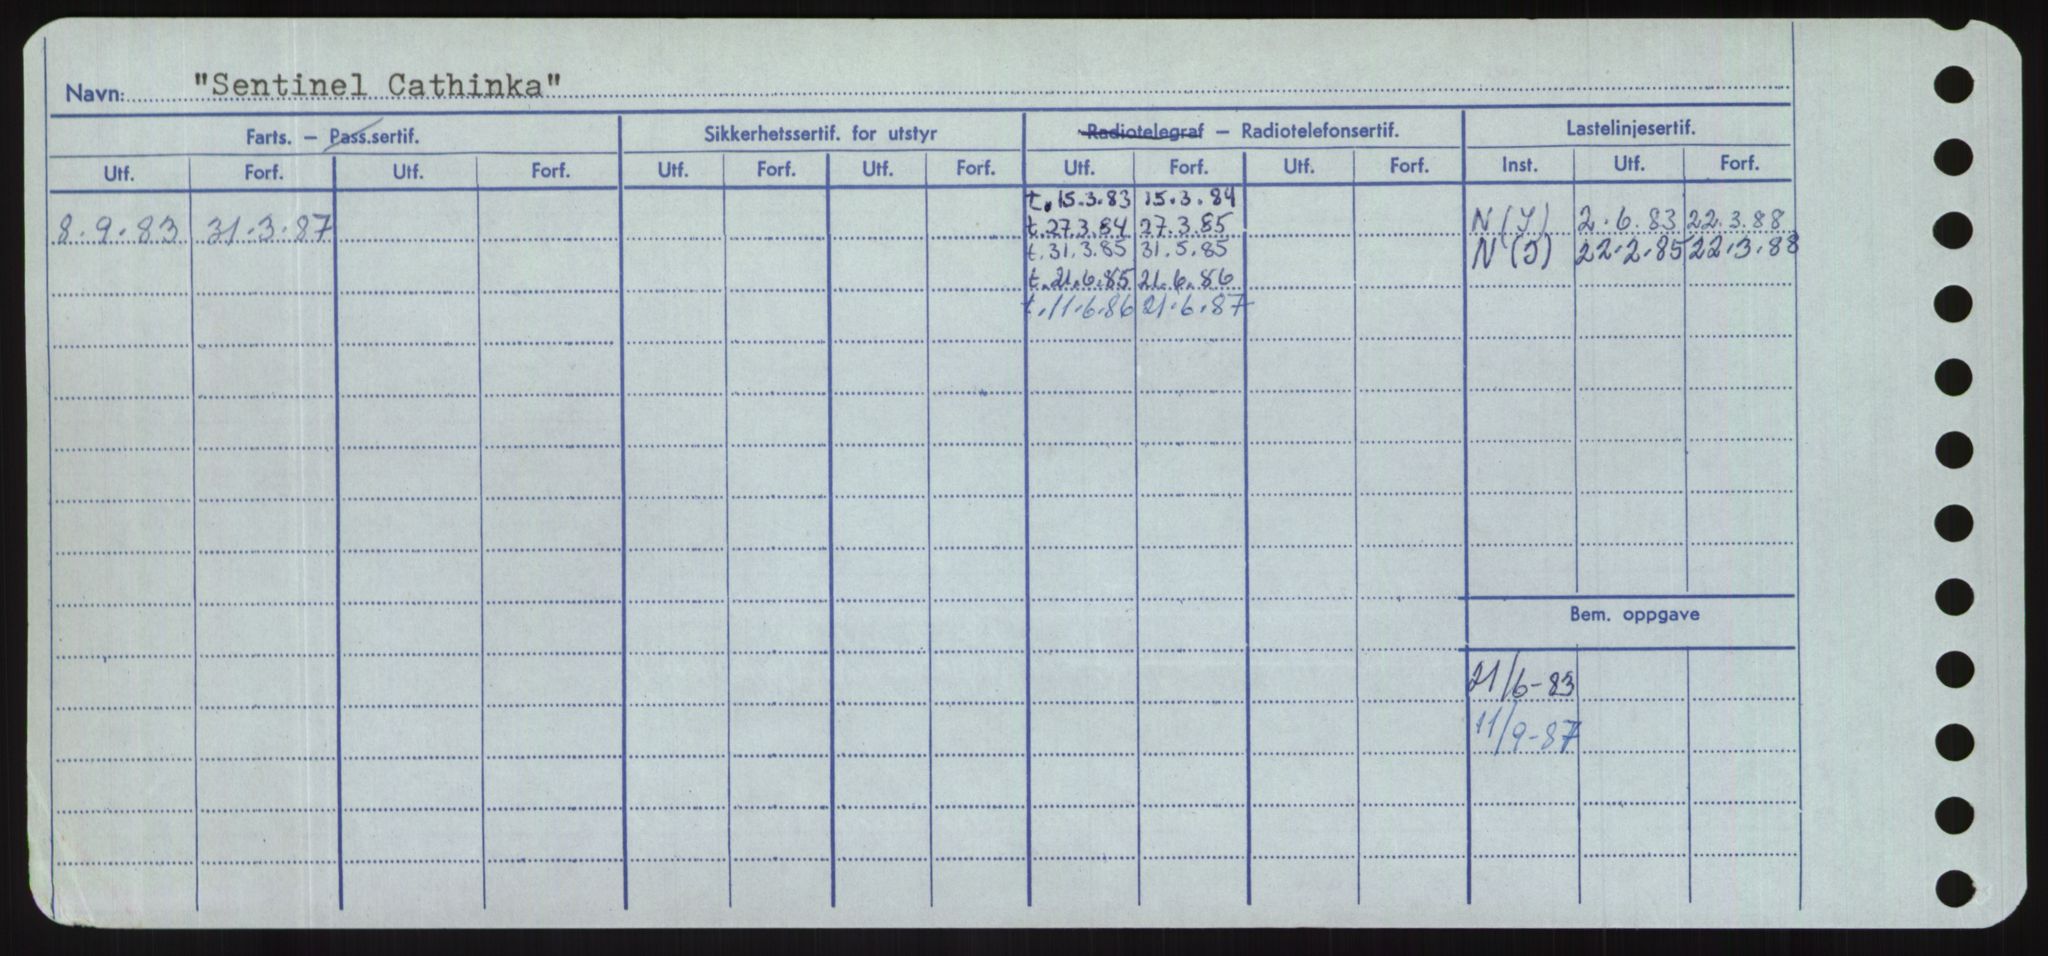 Navn: "Sentinel Cathinka"
Farts. — Pass.sertif. Sikkerhetssertif. for utstyr Radiotelegraf — Radiotelefonsertif. Lastelinjesertif.
Utf. Forf. Utf. Forf. Utf. Forf. Utf. Forf. Utf. Forf. Utf. Forf. Inst. Utf. Forf.
t. 15.3.83 15.3.84
8.9.83 31.3.87 t. 27.3.84 27.3.85 N(J) 2.6.83 22.3.88
t. 31.3.85 31.5.85 N(J) 22.2.85 22.3.88
t. 21.6.85 21.6.86
t. 11.6.86 21.6.87
Bem. oppgave
21/6-83
11/9-87